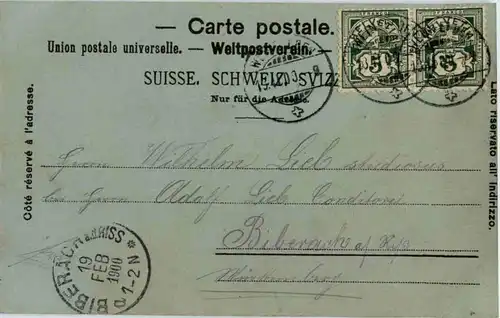 Carte postale.
Union postale universelle. — Weltpostverein.
SUISSE. SCHWEIZ. SVIZ
Nur für die Adresse.
Côté réservé à l'adresse.
Lato riservato all' indirizzo.
5 5
Herrn Wilhelm Lieb studiosus
bei Herrn Adolf Lieb Conditorei
Biberach a/Riss
BIBERACH a.d. RISS
19
FEB
1900
1-2 N